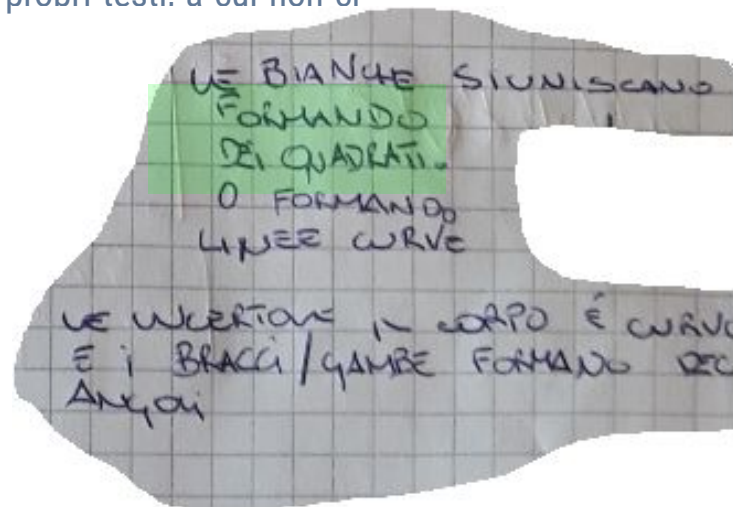 propri testi. a cui non or
LE BIANCHE SI UNISCANO
FORMANDO
DEI QUADRATI.
O FORMANDO
LINEE CURVE
LE LUCERTOLE IL CORPO É CURVO
E i BRACCI/GAMBE FORMANO DEG
ANGOLI